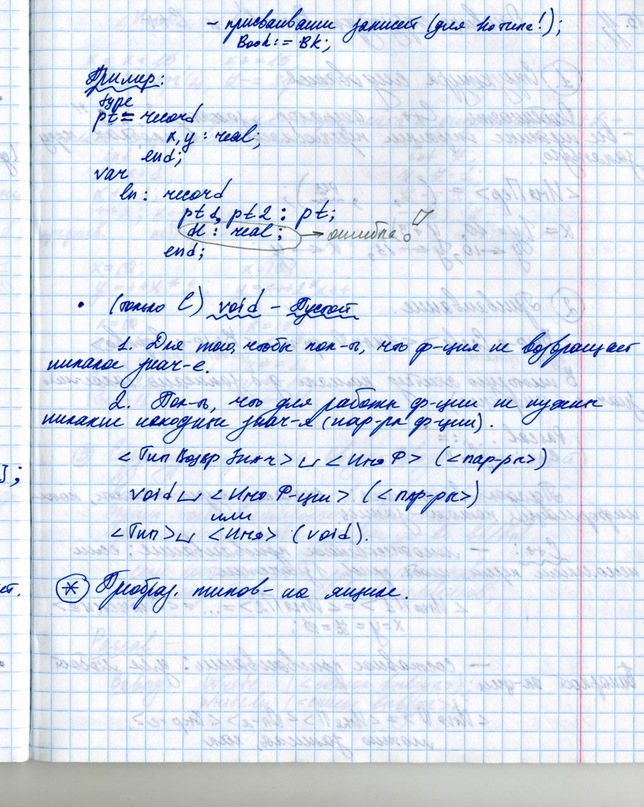 - присваивания записей (для 1о типа!);
Book := BK;
Пример:
type
pt = record
x, y : real;
end;
var
ln : record
pt1, pt2 : pt;
dl : real; → ошибка
end;
• (только C) void - Пустой
1. Для того, чтобы пок-ть, что ф-ция не возвращает
никакое знач-е.
2. Пок-ть, что для работы ф-ции не нужны
никакие исходные знач-я (пар-ры ф-ции).
<Тип Возвр Знач>␣<Имя Ф> (<пар-ры>)
void␣<Имя Ф-ции> (<пар-ры>)
или
<Тип>␣<Имя> (void).
* Преобраз. типов - на лекции.
];